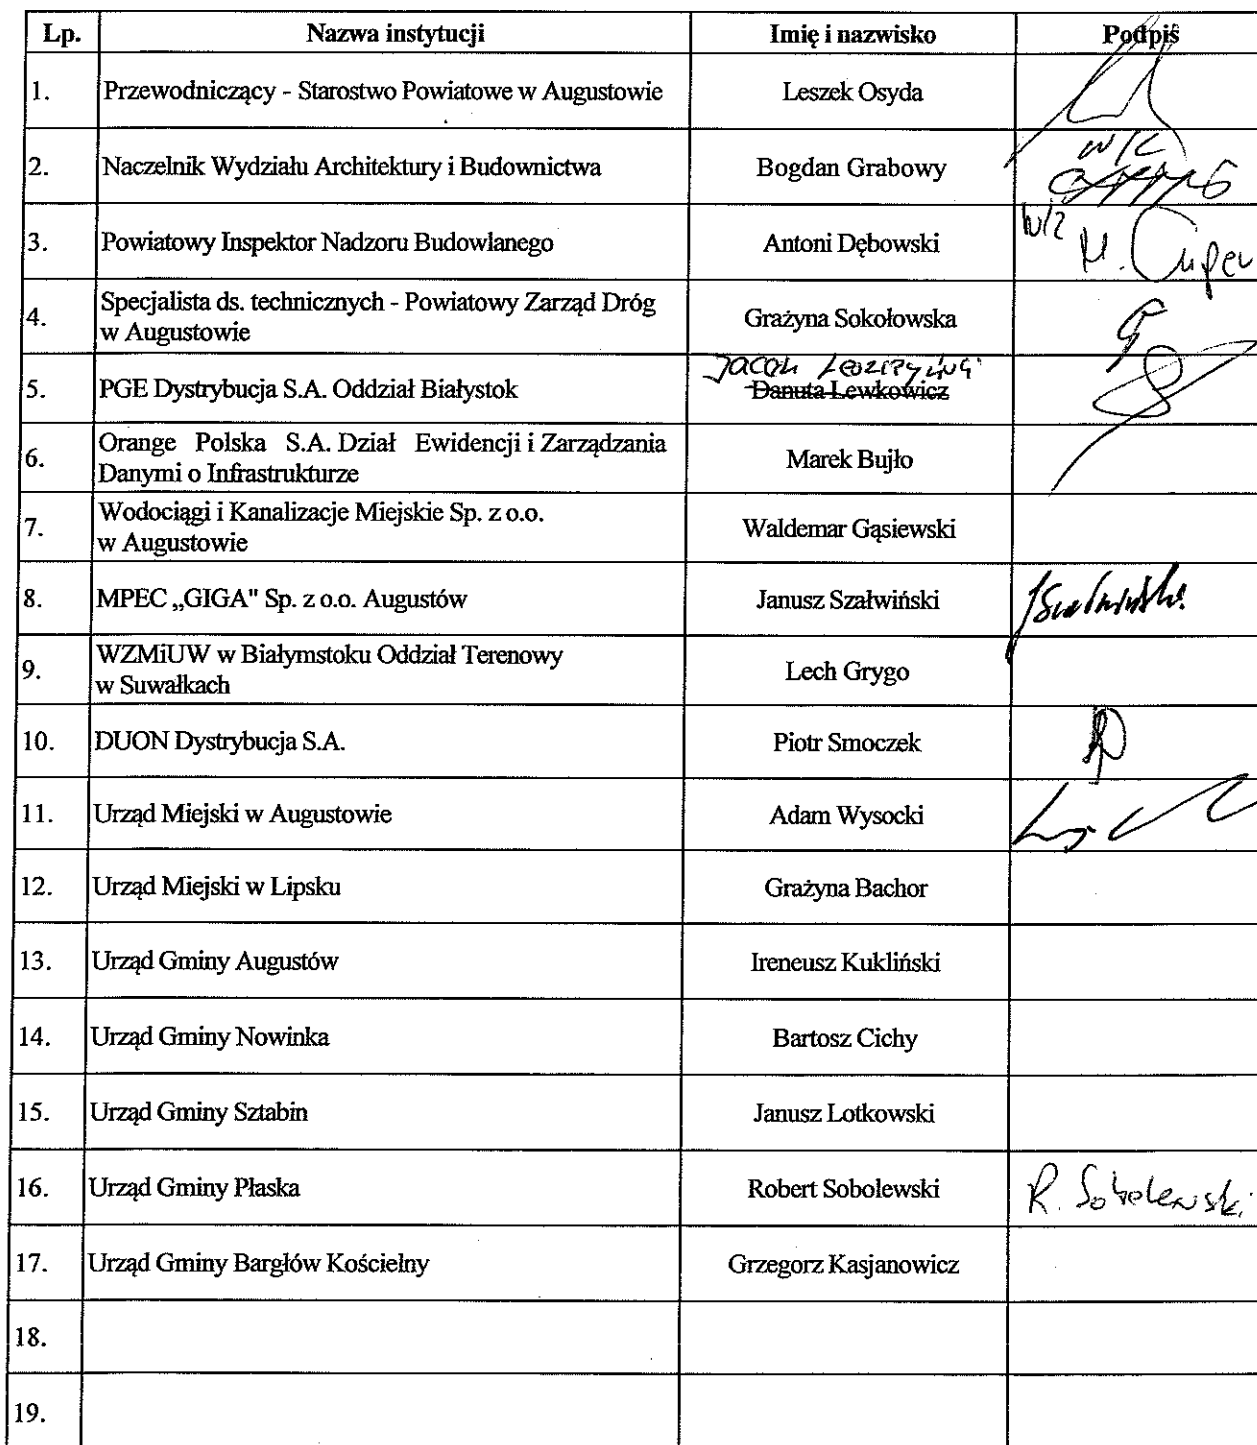 Lp. Nazwa instytucji Imię i nazwisko Podpis
1. Przewodniczący - Starostwo Powiatowe w Augustowie Leszek Osyda
2. Naczelnik Wydziału Architektury i Budownictwa Bogdan Grabowy
3. Powiatowy Inspektor Nadzoru Budowlanego Antoni Dębowski w/z M.
4. Specjalista ds. technicznych - Powiatowy Zarząd Dróg
w Augustowie Grażyna Sokołowska
Jacek
5. PGE Dystrybucja S.A. Oddział Białystok Danuta Lewkowicz
6. Orange Polska S.A. Dział Ewidencji i Zarządzania
Danymi o Infrastrukturze Marek Bujło
7. Wodociągi i Kanalizacje Miejskie Sp. z o.o.
w Augustowie Waldemar Gąsiewski
8. MPEC „GIGA" Sp. z o.o. Augustów Janusz Szałwiński
9. WZMiUW w Białymstoku Oddział Terenowy
w Suwałkach Lech Grygo
10. DUON Dystrybucja S.A. Piotr Smoczek
11. Urząd Miejski w Augustowie Adam Wysocki
12. Urząd Miejski w Lipsku Grażyna Bachor
13. Urząd Gminy Augustów Ireneusz Kukliński
14. Urząd Gminy Nowinka Bartosz Cichy
15. Urząd Gminy Sztabin Janusz Lotkowski
16. Urząd Gminy Płaska Robert Sobolewski R. Sobolewski
17. Urząd Gminy Bargłów Kościelny Grzegorz Kasjanowicz
18.
19.